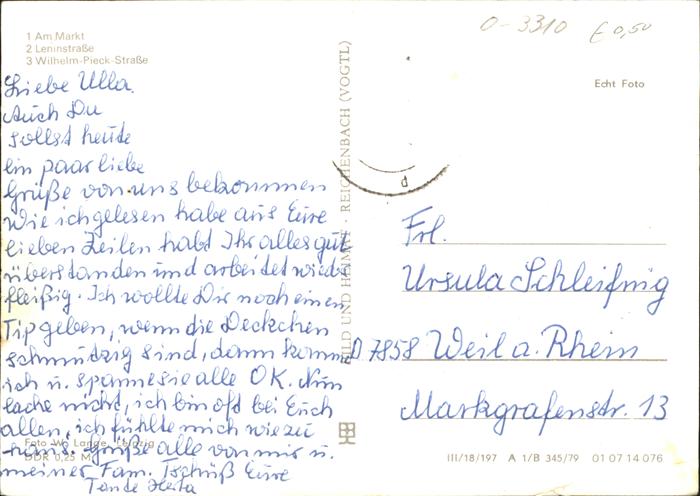 O-3310 € 0,50
1 Am Markt
2 Leninstraße
3 Wilhelm-Pieck-Straße
Echt Foto
Liebe Ulla.
Auch Du
sollst heute
ein paar liebe
Grüße von uns bekommen
Wie ich gelesen habe aus Eure
lieben Zeilen habt Ihr alles gut
überstanden und arbeitet wieder
fleißig. Ich wollte Dir noch einen
Tip geben, wenn die Deckchen
schmutzig sind, dann komme
ich u. spanne sie alle OK. Nun
lache nicht, ich bin oft bei Euch
allen, ich fühlte mich wie zu
haus. Grüße alle von mir u.
meiner Fam. Tschüß Eure
Tante Herta
Foto: Lange, Leipzig
DDR 0,25 M
BILD UND HEIMAT · REICHENBACH (VOGTL)
Frl.
Ursula Schleifnig
D 7858 Weil a. Rhein
Markgrafenstr. 13
III/18/197 A 1/B 345/79 01 07 14 076